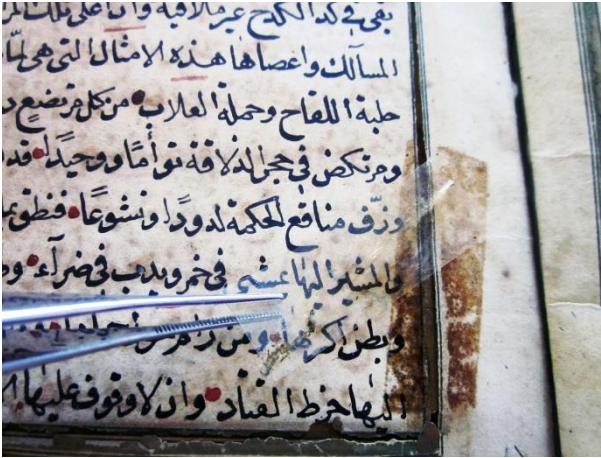 بقى فى كد الكدح غير ملاقيه وان اعلى تلك
المسالك واعصاها هذه الامثال التى هى
حلبة اللقاح وحملة العلاب من كل مرتضع
ومرتكض فى حجر الذلاقة توأمًا ووحيدًا قد
ونزف مناقع الحكمة لدودًا ونشوعًا فنطق
والمشير اليها يمشى فى خمر ويدب فى ضراء
وبطن اكثرها ومن
اليها خرط القتاد وان لا وقوف عليها